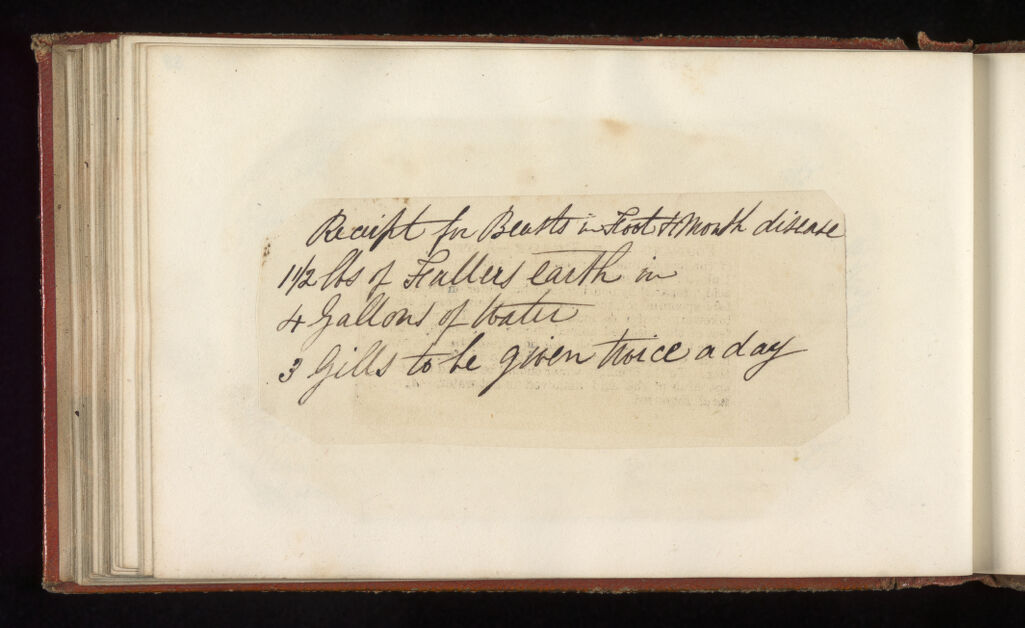 Receipt for Beasts in Foot & Mouth disease
1 1/2 lbs of Fullers earth in
4 Gallons of Water
3 Gills to be given twice a day